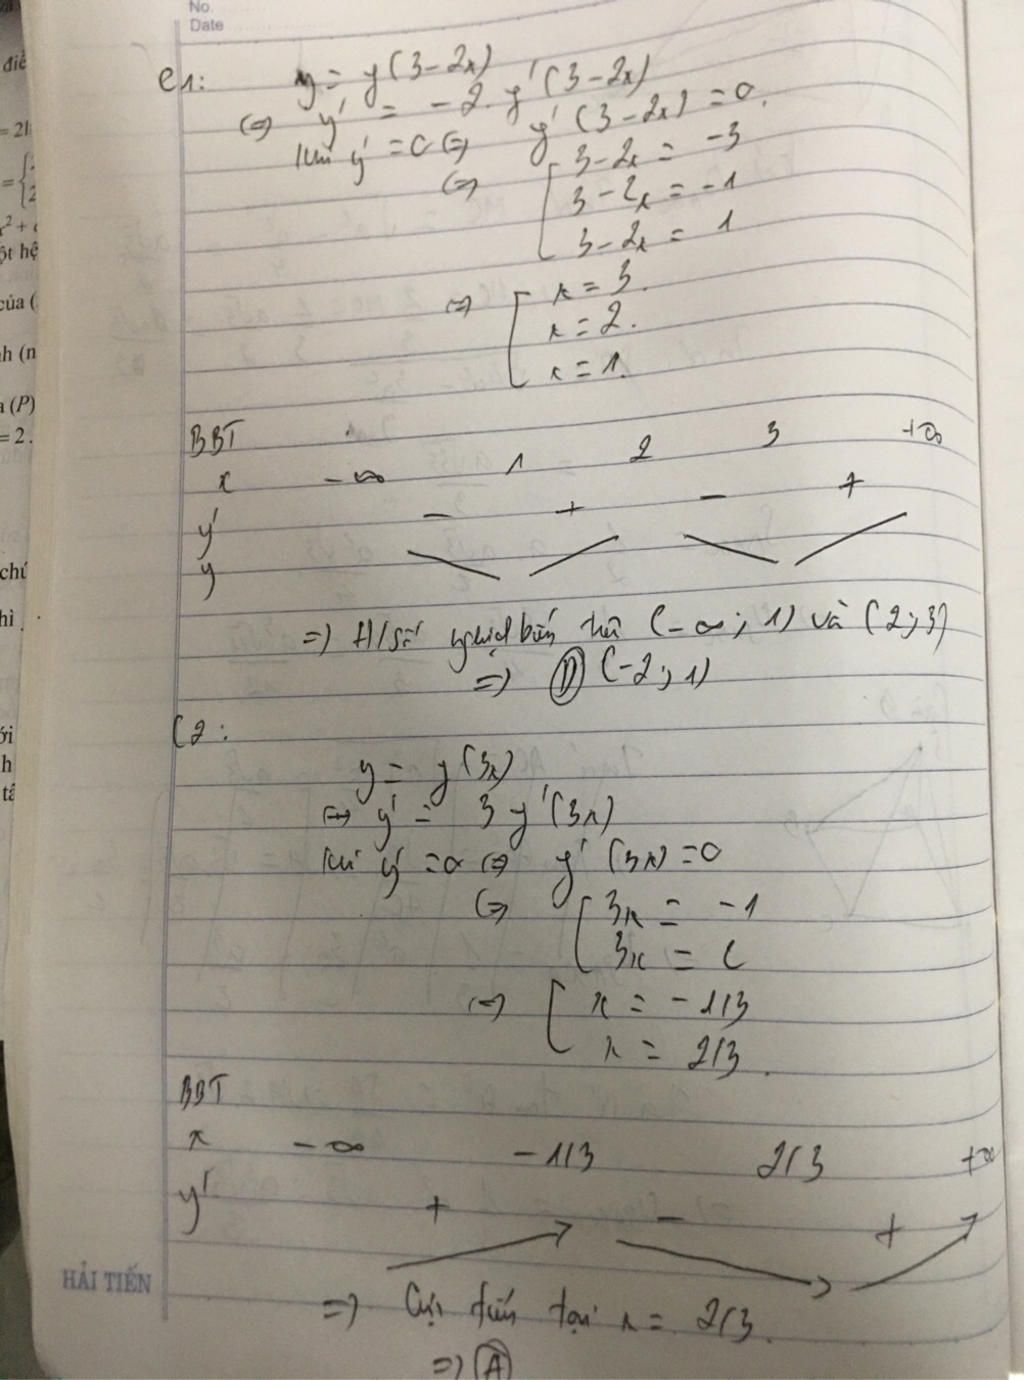 No.
Date
điề
= 2l
x² +
ột hệ
của (
nh (n
a (P)
= 2.
chú
hì
ới
h
tấ
C1: y = y(3-2x)
(=) y' = -2. y'(3-2x)
khi y' = 0 (=) y'(3-2x) = 0.
(=) [ 3-2x = -3
3-2x = -1
3-2x = 1
(=) [ x = 3.
x = 2.
x = 1.
BBT
x -∞ 1 2 3 +∞
y' - + - +
y
=) H/số nghịch biến trên (-∞; 1) và (2; 3)
=) D (-2; 1)
C2:
y = y(3x)
(=) y' = 3y'(3x)
khi y' = 0 (=) y'(3x) = 0
(=) [ 3x = -1
3x = 2
(=) [ x = -1/3
x = 2/3.
BBT
x -∞ -1/3 2/3 +∞
y' + - +
=) Cực tiểu tại x = 2/3.
=) A
HẢI TIẾN